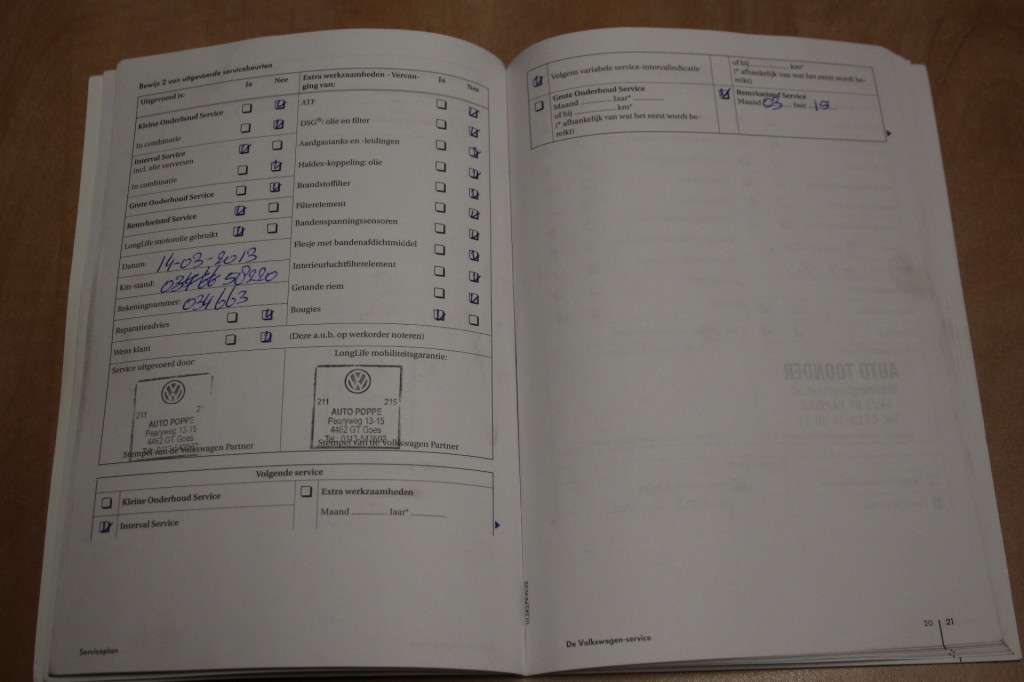 Bewijs 2 van uitgevoerde servicebeurten
Uitgevoerd is: Ja Nee
Kleine Onderhoud Service
In combinatie
Interval Service
incl. olie verversen
In combinatie
Grote Onderhoud Service
Remvloeistof Service
LongLife motorolie gebruikt
Datum: 14-03-2013
Km-stand: 58220
Rekeningnummer: 034663
Reparatieadvies
Wens klant
Extra werkzaamheden - Vervan-
ging van: Ja Nee
ATF
DSG®: olie en filter
Aardgastanks en -leidingen
Haldex-koppeling: olie
Brandstoffilter
Filterelement
Bandenspanningssensoren
Flesje met bandenafdichtmiddel
Interieurluchtfilterelement
Getande riem
Bougies
(Deze a.u.b. op werkorder noteren)
Service uitgevoerd door:
211
AUTO POPPE
Pearyweg 13-15
4462 GT Goes
Stempel van de Volkswagen Partner
LongLife mobiliteitsgarantie:
211 215
AUTO POPPE
Pearyweg 13-15
4462 GT Goes
Stempel van de Volkswagen Partner
Volgende service
Kleine Onderhoud Service
Interval Service
Extra werkzaamheden
Maand .............. Jaar* ..............
Serviceplan
Volgens variabele service-intervalindicatie
Grote Onderhoud Service
Maand ............ Jaar* ............
of bij ................ km*
(* afhankelijk van wat het eerst wordt be-
reikt)
of bij ................ km*
(* afhankelijk van wat het eerst wordt be-
reikt)
Remvloeistof Service
Maand 03 Jaar 15
De Volkswagen-service
20 21